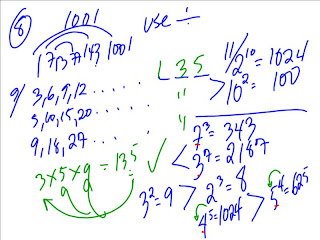 ⑧ 1001 use ÷
1 7 13 77 143 1001
9/ 3,6,9,12 .....
5,10,15,20 .....
9,18,27 ....
3×5×9=135 ✓
L 35
"
"
11/ 2^10 = 1024
> 10^2 = 100
7^3 = 343
< 3^7 = 2187
3^2=9 > 2^3=8
4^5=1024 > 5^4=625